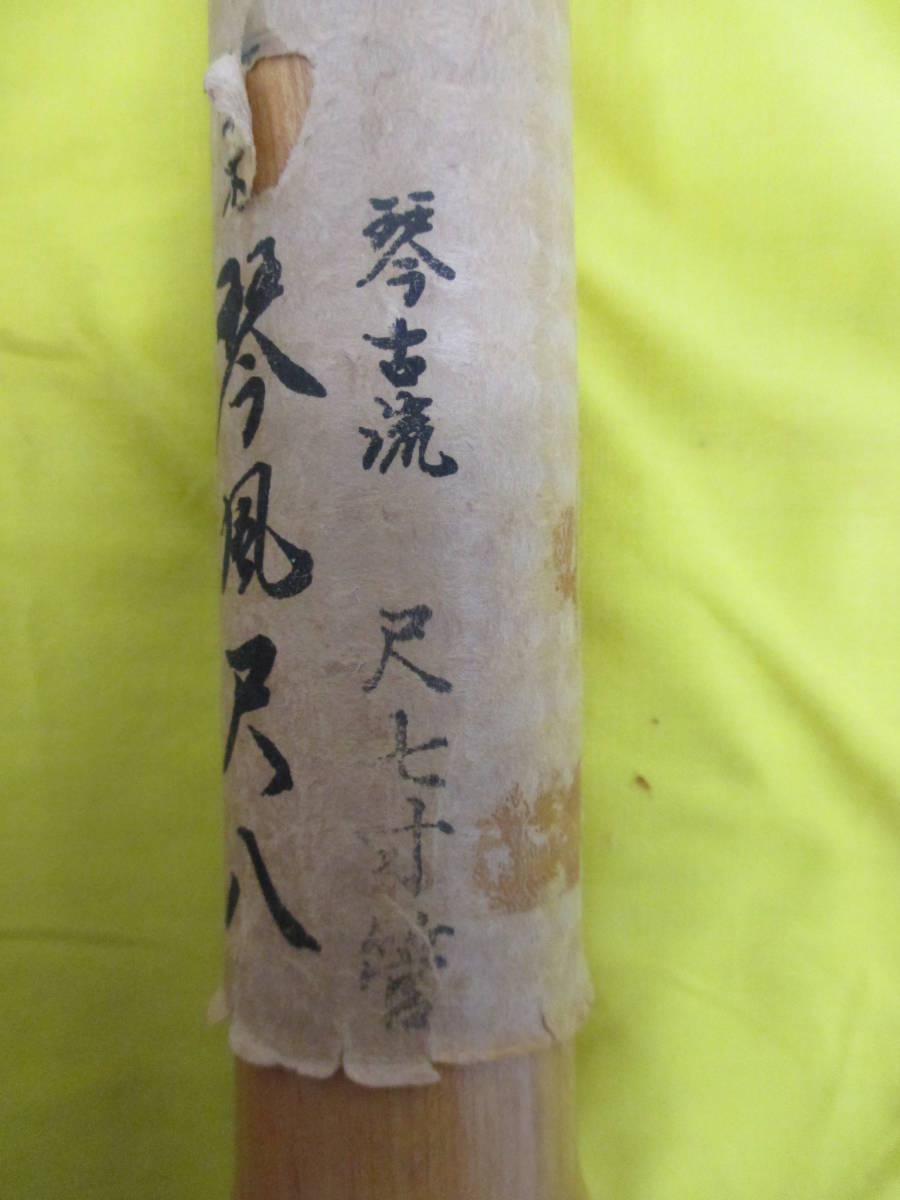 琴古流 尺七寸管
琴風尺八